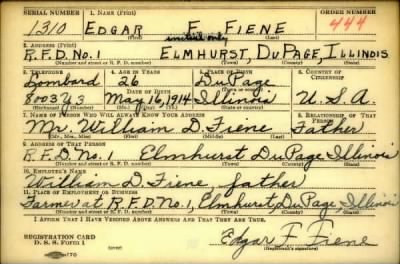 SERIAL NUMBER 1. NAME (Print) ORDER NUMBER
1310 EDGAR F. FIENE 444
initial only
(First) (Middle) (Last)
2. ADDRESS (Print)
R.F.D. No. 1 ELMHURST, DUPAGE, ILLINOIS
(Number and street or R. F. D. number) (Town) (County) (State)
3. TELEPHONE 4. AGE IN YEARS 5. PLACE OF BIRTH 6. COUNTRY OF CITIZENSHIP
Lombard 26 DuPage
DATE OF BIRTH
May 16, 1914 Illinois U.S.A.
(Exchange) (Number) (Mo.) (Day) (Yr.) (Town or county) (State or country)
7. NAME OF PERSON WHO WILL ALWAYS KNOW YOUR ADDRESS 8. RELATIONSHIP OF THAT PERSON
Mr. William D. Fiene Father
(Mr., Mrs., Miss) (First) (Middle) (Last)
9. ADDRESS OF THAT PERSON
R.F.D. No. 1 Elmhurst, DuPage Illinois
(Number and street or R. F. D. number) (Town) (County) (State)
10. EMPLOYER'S NAME
William D. Fiene, father
11. PLACE OF EMPLOYMENT OR BUSINESS
Farmer at R.F.D. No. 1, Elmhurst, DuPage, Illinois
(Number and street or R. F. D. number) (Town) (County) (State)
I AFFIRM THAT I HAVE VERIFIED ABOVE ANSWERS AND THAT THEY ARE TRUE.
REGISTRATION CARD
D. S. S. Form 1
Edgar F. Fiene
(Registrant's signature)